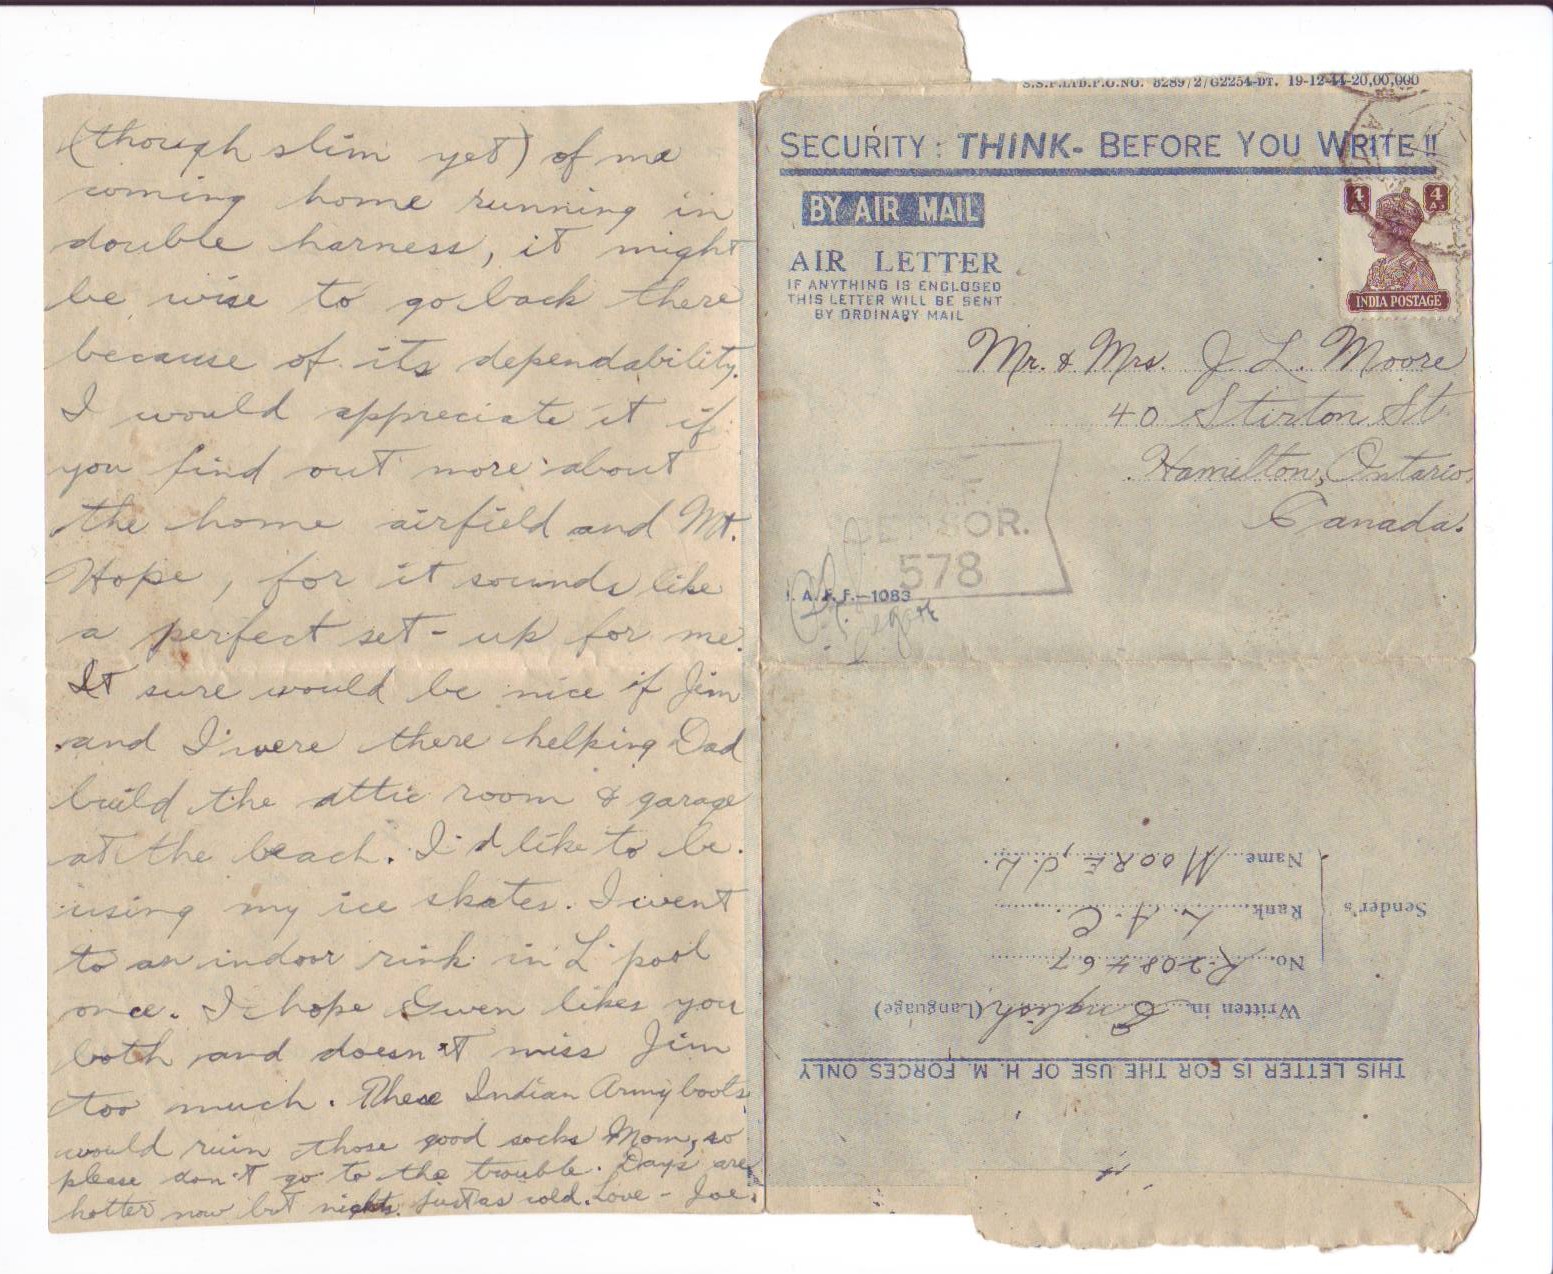 (though slim yet) of me
coming home running in
double harness, it might
be wise to go back there
because of its dependability.
I would appreciate it if
you find out more about
the home airfield and Mt.
Hope, for it sounds like
a perfect set-up for me.
It sure would be nice if Jim
and I were there helping Dad
build the attic room & garage
at the beach. I'd like to be
using my ice skates. I went
to an indoor rink in L'pool
once. I hope Gwen likes you
both and doesn't miss Jim
too much. These Indian Army boots
would ruin those good socks Mom, so
please don't go to the trouble. Days are
hotter now but nights just as cold. Love - Joe.
S.S.P.LTD.P.O.NO. 8289/2/G2254-DT. 19-12-44-20,00,000
SECURITY: THINK- BEFORE YOU WRITE!!
BY AIR MAIL
AIR LETTER
IF ANYTHING IS ENCLOSED
THIS LETTER WILL BE SENT
BY ORDINARY MAIL
4 A. 4 A.
INDIA POSTAGE
Mr. & Mrs. J L. Moore
40 Stirton St.
Hamilton, Ontario,
Canada.
CENSOR.
578
I. A. F. F.—1083
THIS LETTER IS FOR THE USE OF H. M. FORCES ONLY
Written in English (Language)
Sender's
No. R208467
Rank L.A.C.
Name MOORE, J.L.